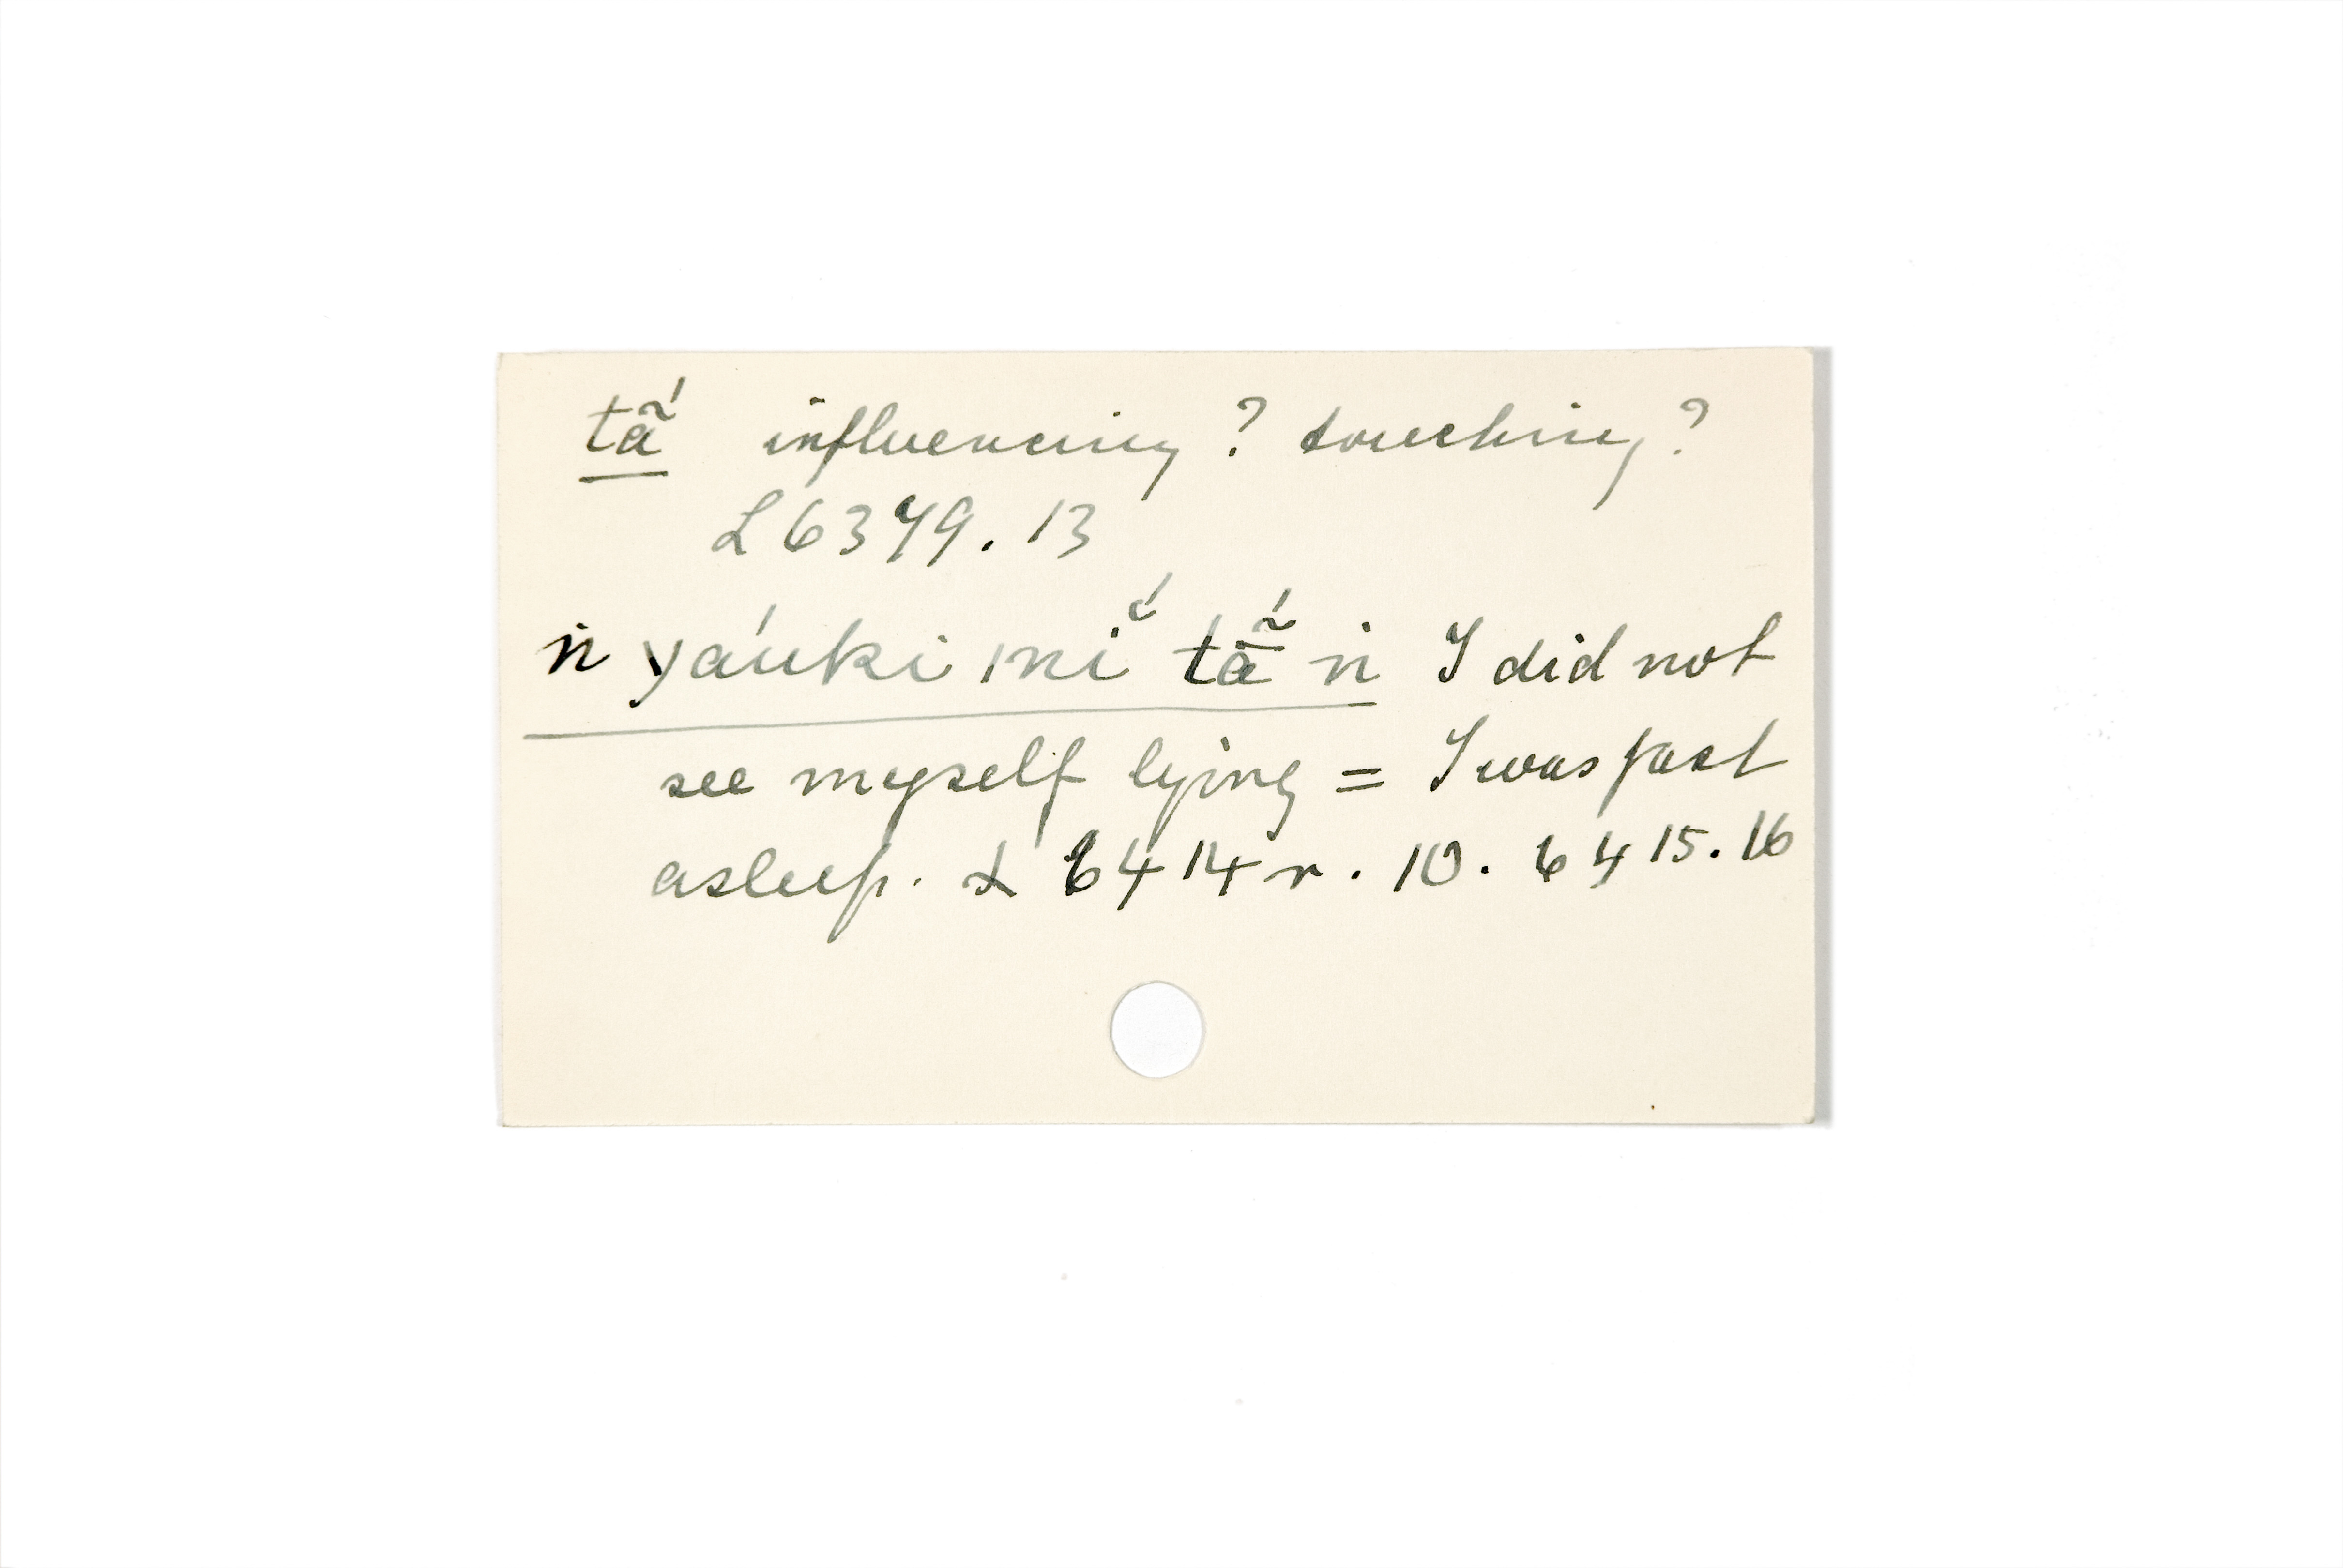 tã́ influencing? touching?
L 6379.13
ṅ yáuki |nǐ́ tā̃́ ṅ I did not
see myself lying = I was fast
asleep. L 6414r.10. 6415.16